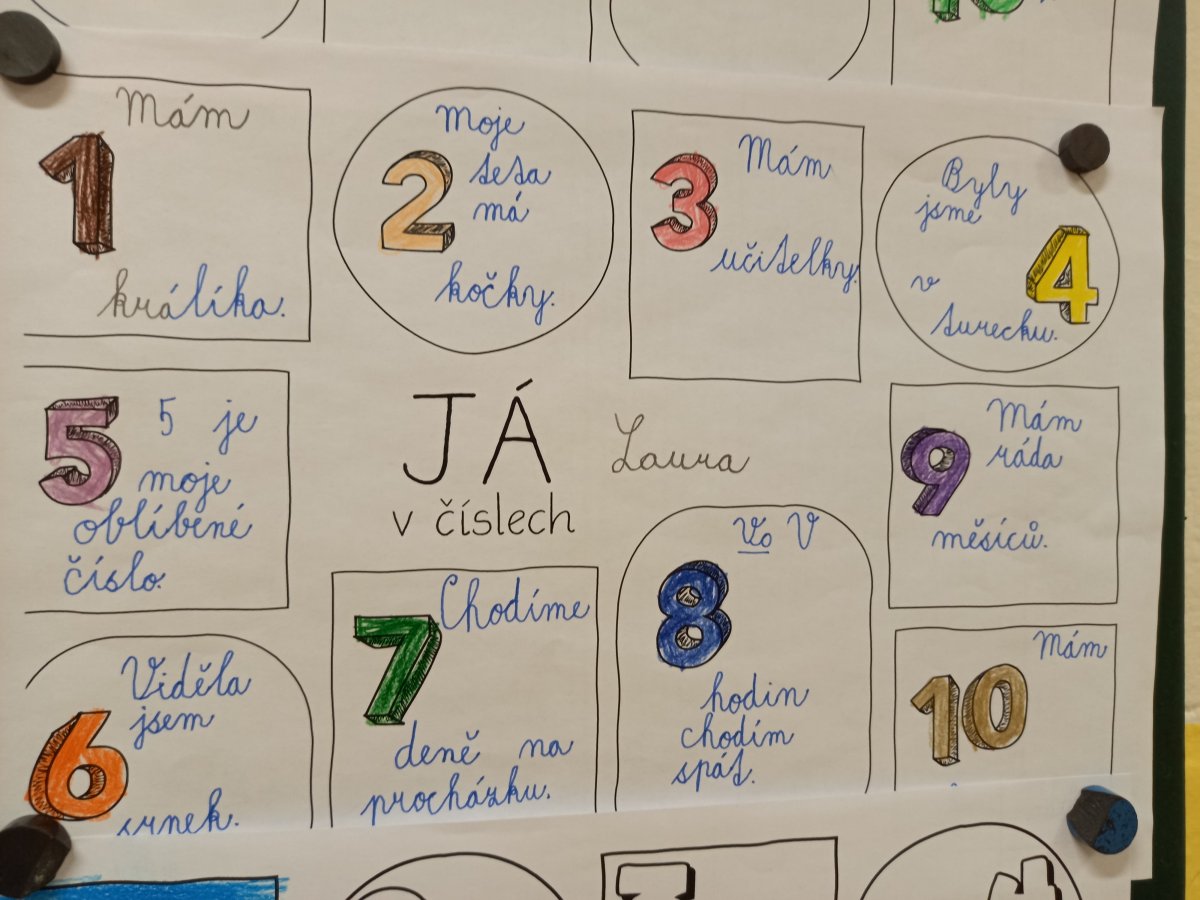 Mám
1
králíka.
Moje
2 teta
má
kočky.
Mám
3
učitelky.
Byly
jsme
4
v
turecku.
5 5 je
moje
oblíbené
číslo.
JÁ
v číslech
Laura
9 Mám
ráda
měsíců.
Viděla
jsem
6
srnek.
Chodíme
7
deně na
procházku.
Vo V
8
hodin
chodím
spát.
Mám
10